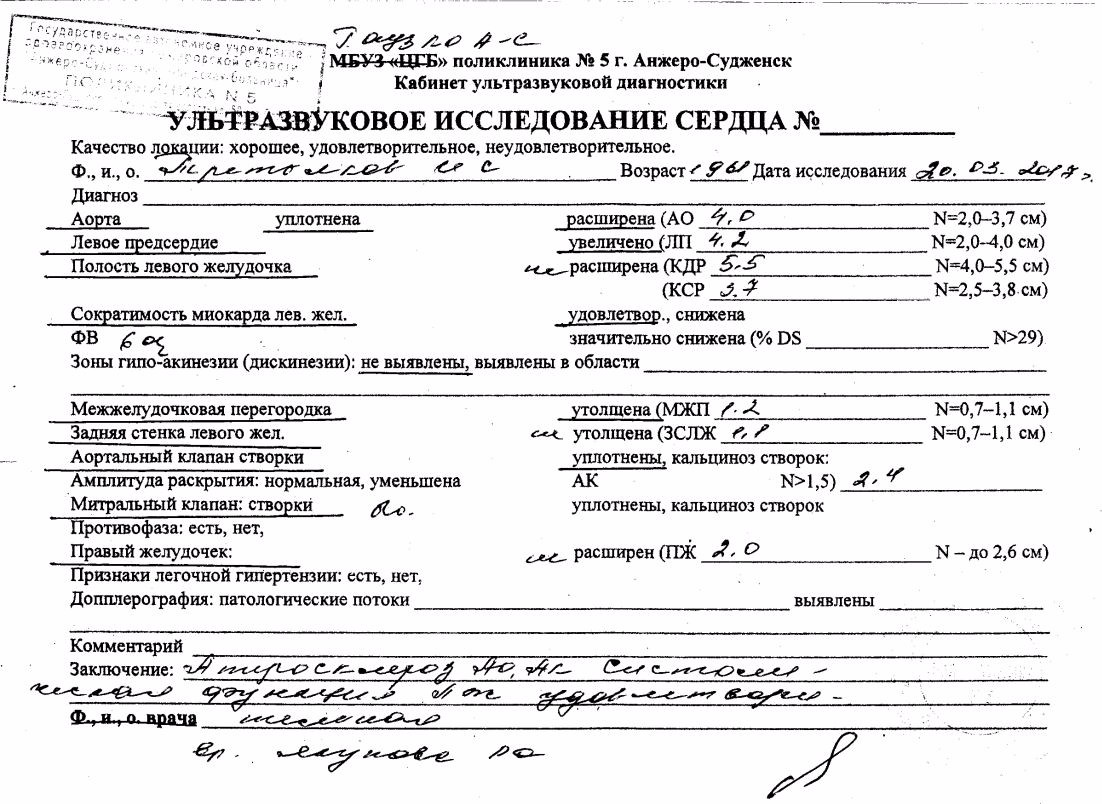 Государственное автономное учреждение
здравоохранения Кемеровской области
ПОЛИКЛИНИКА N 5
Гаузко А-С
МБУЗ «ЦГБ» поликлиника № 5 г. Анжеро-Судженск
Кабинет ультразвуковой диагностики
УЛЬТРАЗВУКОВОЕ ИССЛЕДОВАНИЕ СЕРДЦА №
Качество локации: хорошее, удовлетворительное, неудовлетворительное.
Ф., и., о. И С Возраст 1961 Дата исследования 20. 03. 2017г.
Диагноз
Аорта уплотнена расширена (АО 4,0 N=2,0–3,7 см)
Левое предсердие увеличено (ЛП 4.2 N=2,0–4,0 см)
Полость левого желудочка не расширена (КДР 5.5 N=4,0–5,5 см)
(КСР 3.7 N=2,5–3,8 см)
Сократимость миокарда лев. жел. удовлетвор., снижена
ФВ значительно снижена (% DS N>29)
Зоны гипо-акинезии (дискинезии): не выявлены, выявлены в области
Межжелудочковая перегородка утолщена (МЖП 1.2 N=0,7–1,1 см)
Задняя стенка левого жел. не утолщена (ЗСЛЖ 1,1 N=0,7–1,1 см)
Аортальный клапан створки уплотнены, кальциноз створок:
Амплитуда раскрытия: нормальная, уменьшена АК N>1,5) 2.4
Митральный клапан: створки уплотнены, кальциноз створок
Противофаза: есть, нет,
Правый желудочек: не расширен (ПЖ 2.0 N – до 2,6 см)
Признаки легочной гипертензии: есть, нет,
Допплерография: патологические потоки выявлены
Комментарий
Заключение: Атиросклероз Ао, Ак Систоли-
ческая функция лж удовлетвори-
Ф., и., о. врача тельная
вр.